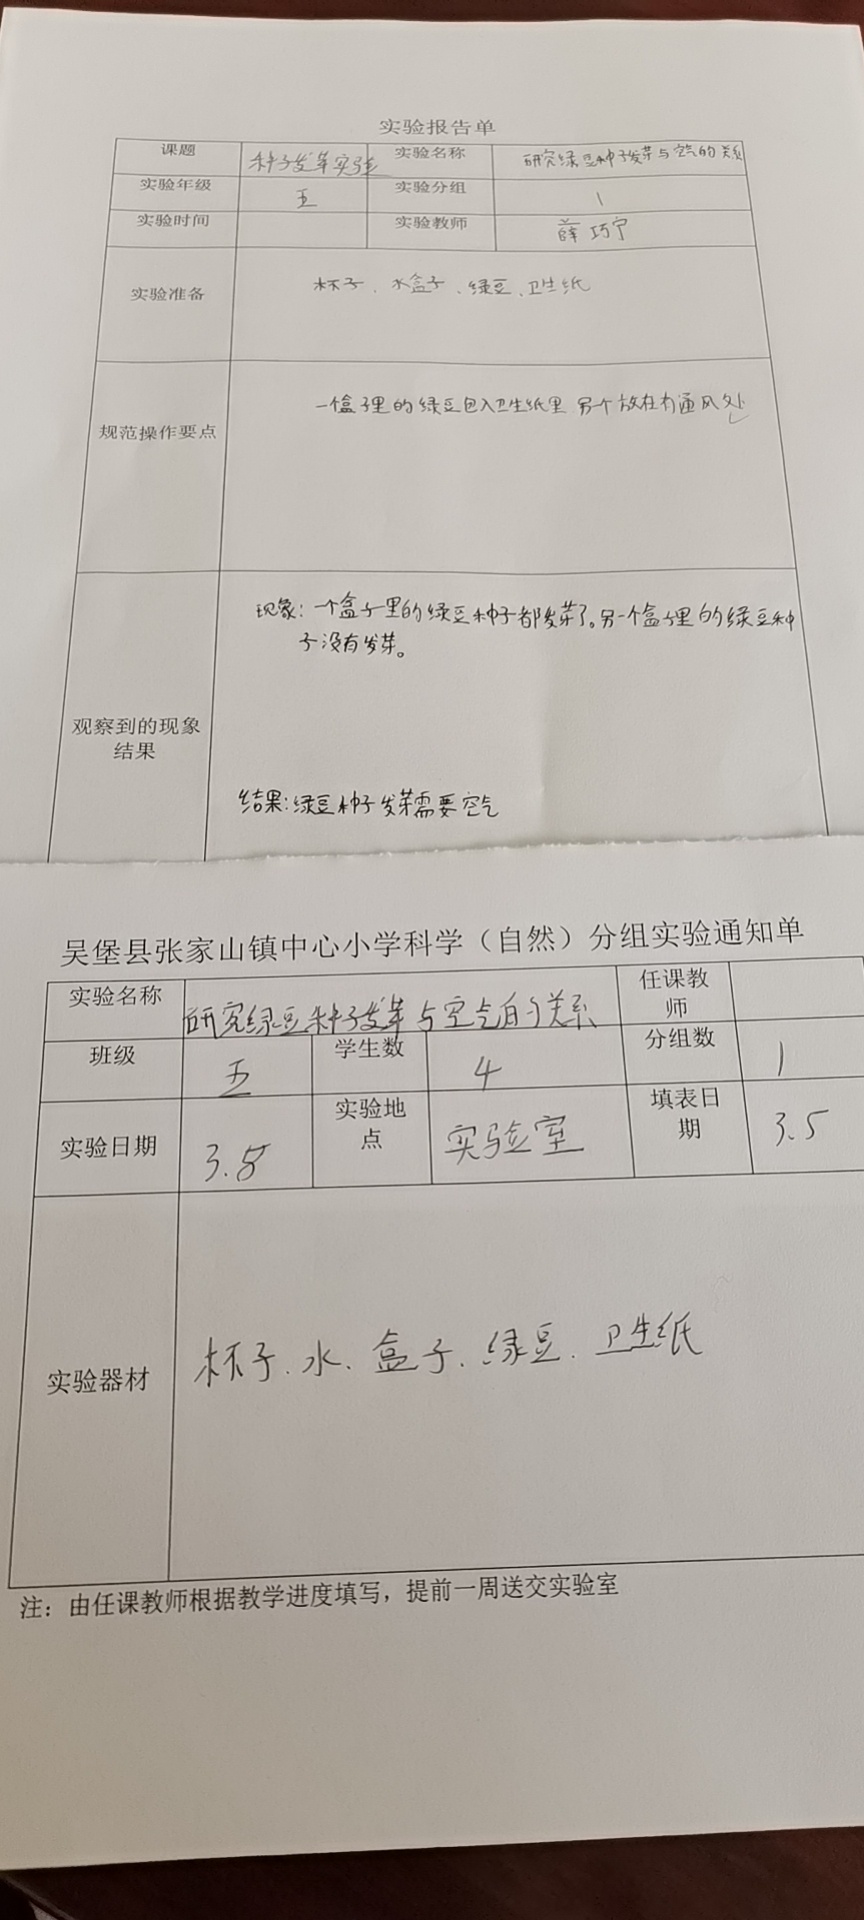 实验报告单
课题 种子发芽实验 实验名称 研究绿豆种子发芽与空气的关系
实验年级 五 实验分组 1
实验时间 实验教师 薛巧宁
实验准备 杯子、水盒子、绿豆、卫生纸
规范操作要点 一个盒子里的绿豆包入卫生纸里 另个放在有通风处
现象：一个盒子里的绿豆种子都发芽了。另一个盒子里的绿豆种
子没有发芽。
观察到的现象
结果
结果：绿豆种子发芽需要空气
吴堡县张家山镇中心小学科学（自然）分组实验通知单
实验名称 研究绿豆种子发芽与空气的关系 任课教
师
班级 五 学生数 4 分组数 1
实验日期 3.8 实验地
点 实验室 填表日
期 3.5
实验器材 杯子、水、盒子、绿豆、卫生纸
注：由任课教师根据教学进度填写，提前一周送交实验室